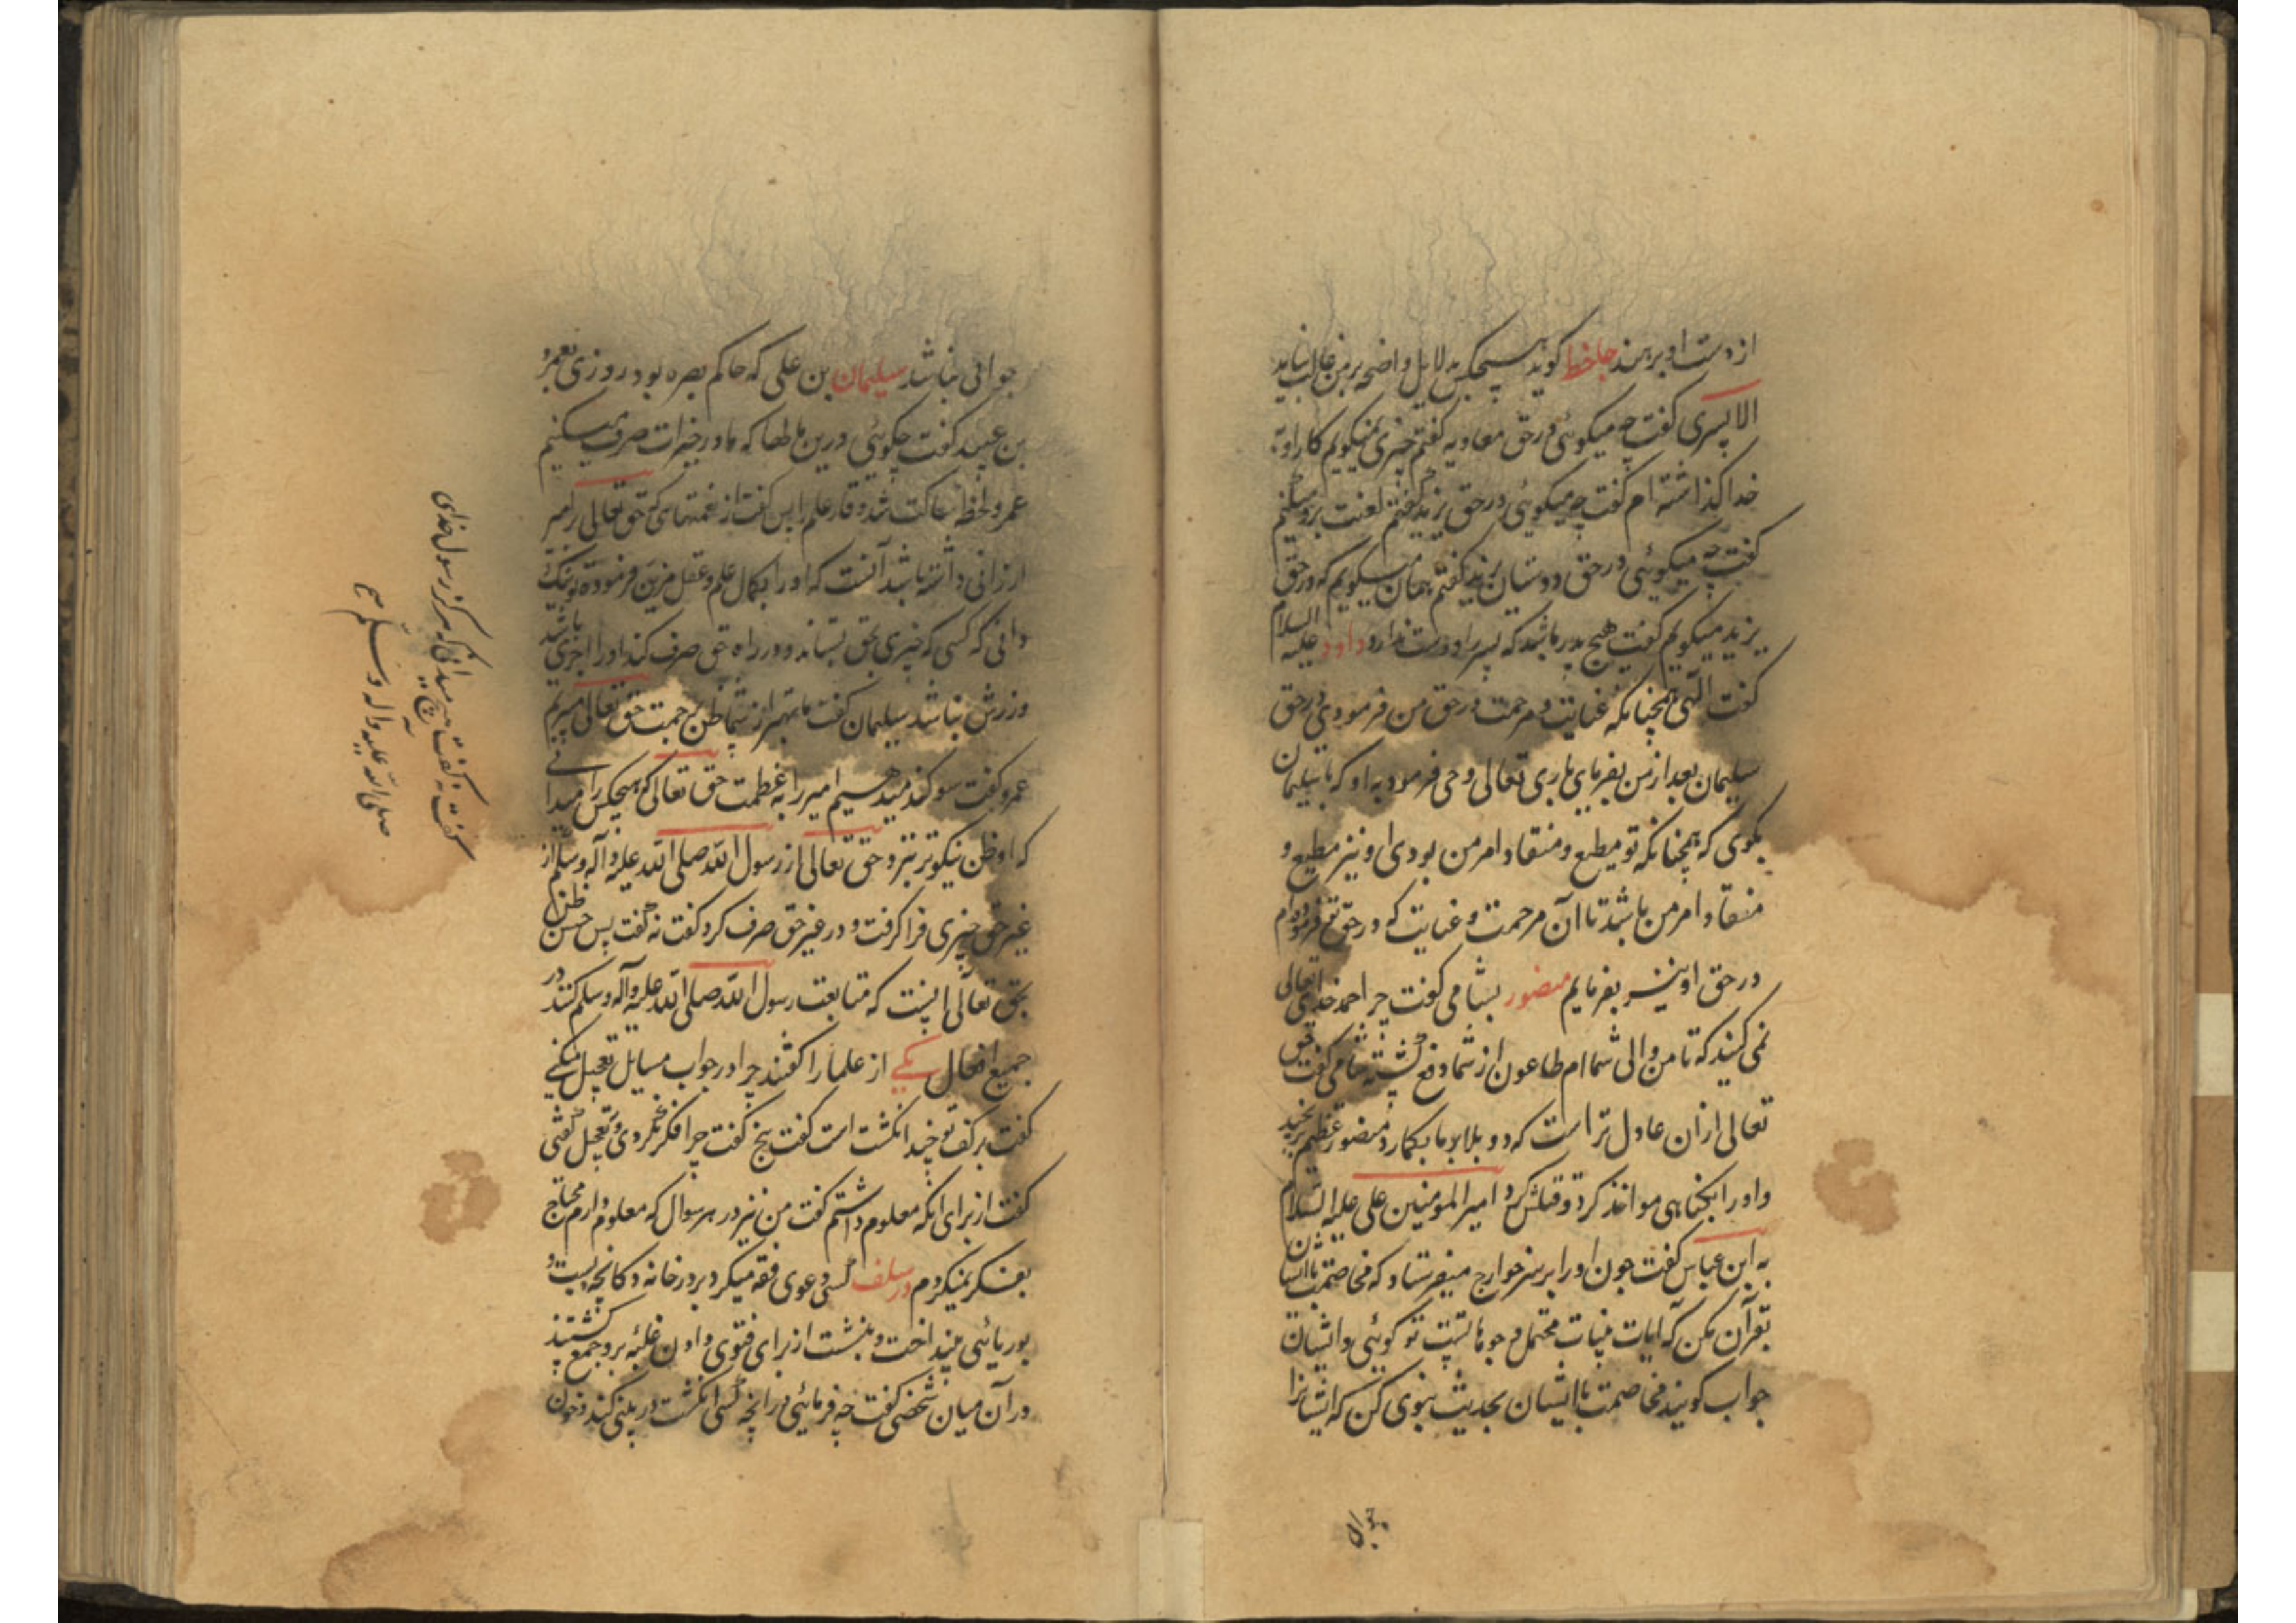 از دست او برهند جاحظ گوید هیچکس به لایل واضحه بر من غالب نیامد
الا پسری گفت چه میگوئی در حق معاویه گفتم چیزی نمیگویم کار او به
خدا گذاشته ام گفت چه میگوئی در حق یزید گفتم لعنت برو میکنم
گفت چه میگوئی در حق دوستان یزید گفتم همان میگویم که در حق
یزید میگویم گفت هیچ پدر باشد که پسر را دوست ندارد داود علیه السلام
گفت الهی همچنانکه عنایت و مرحمت در حق من فرمودی در حق
سلیمان بعد از من بفرمای باری تعالی وحی فرمود به او که با سلیمان
بگوی که همچنانکه تو مطیع و منقاد امر من بودی او نیز مطیع و
منقاد امر من باشد تا آن مرحمت و عنایت که در حق تو فرموده‌ام
در حق او نیز بفرمایم منصور بشامی گفت چرا حمد خدای تعالی
نمی کنید که تا من والی شما ام طاعون از شما دفع گشته شامی گفت حق
تعالی از آن عادل تر است که دو بلا بر ما بگمارد منصور عظیم برنجید
و او را بگناهی مواخذ کرد و قتلش کرد امیر المومنین علی علیه السلام
به ابن عباس گفت چون او را بر سر خوارج میفرستاد که مخاصمت با ایشان
بقرآن مکن که آیات بینات محتمل وجوهاتست تو گوئی و ایشان
جواب گویند مخاصمت با ایشان بحدیث نبوی کن که ایشانرا
جوابی نباشد سلیمان بن علی که حاکم بصره بود روزی بعمرو
بن عبید گفت چگوئی درین مالها که ما در خیرات صرف میکنیم
عمرو لحظه ساکت شد و قار علم را پس گفت از نعمتهائی که حق تعالی بر امیر
ارزانی داشته باشد آنست که او را بکمال علم و عقل مزین فرموده تو نیک
دانی که کسی که چیزی بحق بستاند و در راه حق صرف کند او را اجری باشد
وزرش نباشد سلیمان گفت ما بهتر از شما ظن برحمت حق تعالی میبریم
عمرو گفت سوگند میدهیم امیر را به عظمت حق تعالی که هیچکس را میدانی
که او ظن نیکوتر برد حق تعالی از رسول الله صلی الله علیه و آله وسلم از
غیر حق چیزی فرا گرفت و در غیر حق صرف کرد گفت نه گفت پس حسن ظن
بحق تعالی اینست که متابعت رسول الله صلی الله علیه و آله وسلم کنند در
جمیع افعال یکی از علما را گفتند چرا در جواب مسایل تعجیل میکنی
گفت بر کف تو چند انگشت است گفت پنج گفت چرا فکر نکردی و تعجیل گفتی
گفت از برای آنکه معلوم داشتم گفت من نیز در هر سوال که معلوم دارم محتاج
بفکر نمیگردم در سلف کسی دعوی فقه میکرد بر در خانه دکانچه بست و
بوریائی بینداخت و بنشست از برای فتوی دادن غلبه برو جمع گشتند
در آن میان شخصی گفت چه فرمائی در آنچه کسی انگشت در بینی کند و خون
گفت نه گفت هیچ میدانی که هرگز رسول خدای
صلی الله علیه و آله وسلم
جوابی